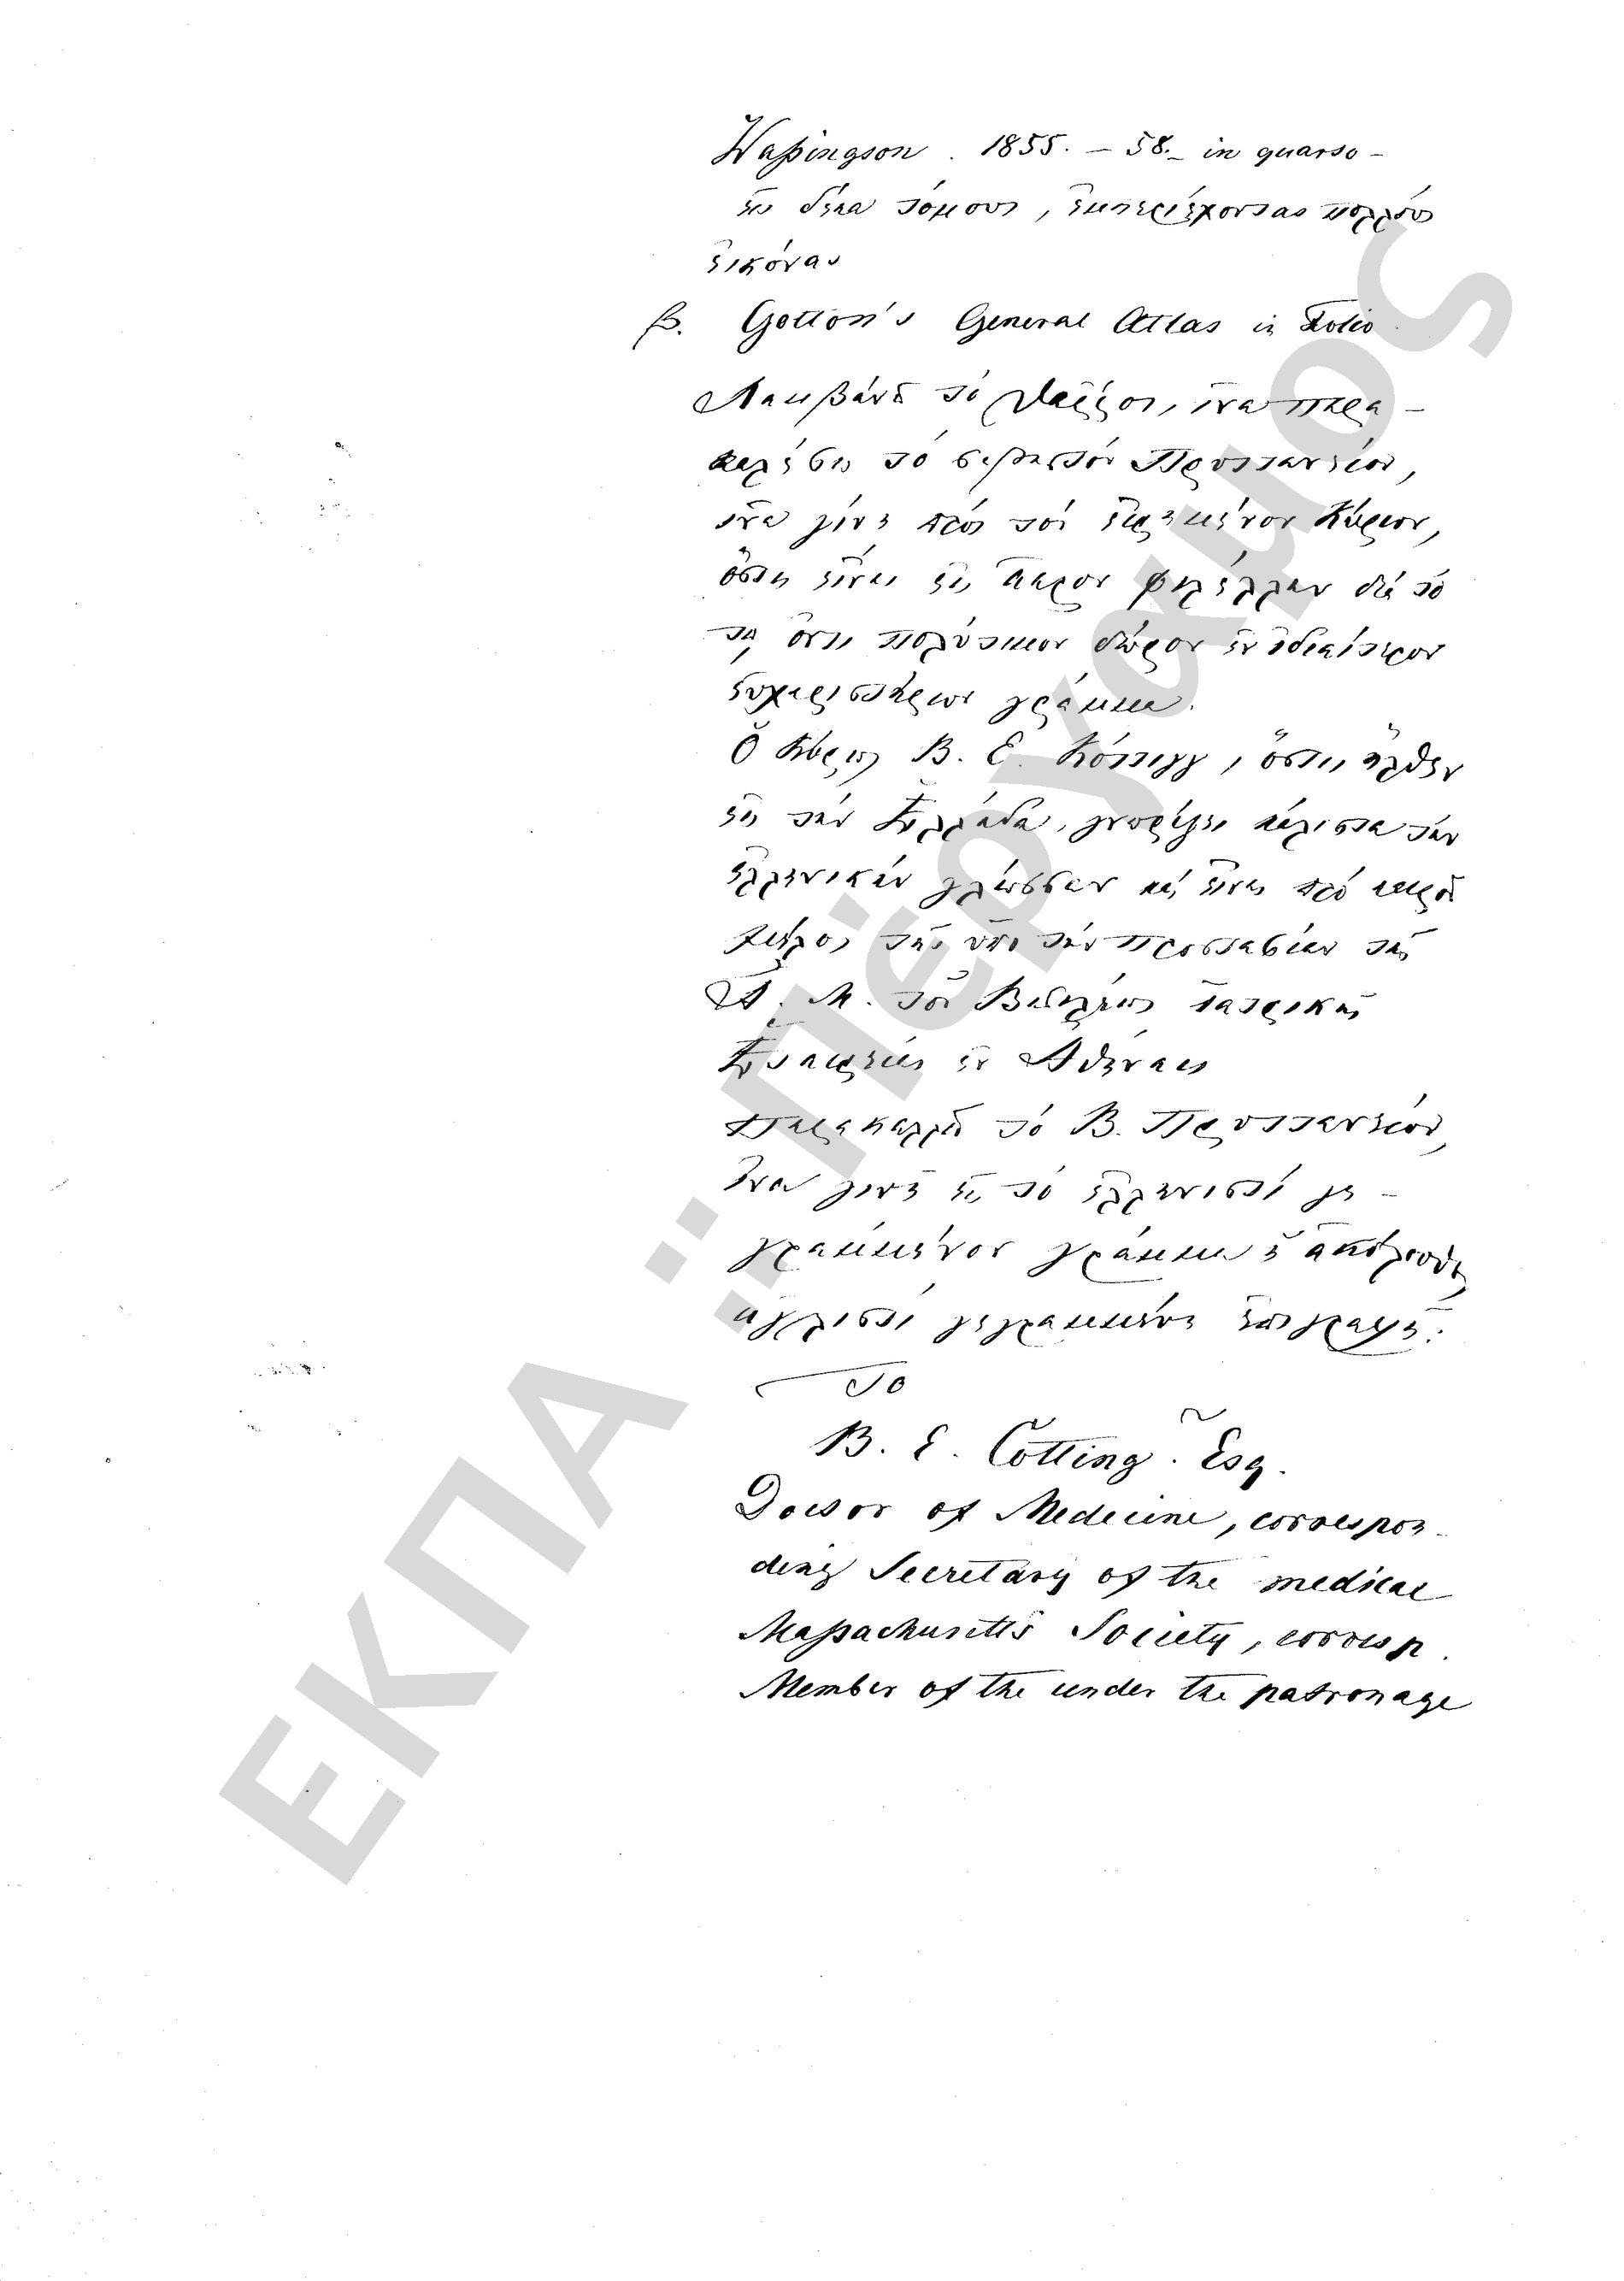 Waßington. 1855. – 58. – in quarto –
εἰς δέκα τόμους, ἐμπεριέχοντας πολλὰς
εἰκόνας
β. Gotton's General Atlas in Folio.
Λαμβάνω τὸ θάῤῥος, ἵνα παρα-
καλέσω τὸ σεβαστὸν Πρυτανεῖον,
ἵνα γίνῃ πρὸς τὸν εἰρημένον Κύριον,
ὅστις εἶναι εἰς ἄκρον φιλέλλην διὰ τὸ
τῳ ὄντι πολύτιμον δῶρον ἓν ἰδιαίτερον
εὐχαριστήριον γράμμα.
Ὁ Κύριος Β. Ε. Κόττιγγ, ὅστις ἦλθεν
εἰς τὴν Ἑλλάδα, γνωρίζει κάλιστα τὴν
ἑλληνικὴν γλῶσσαν καὶ εἶναι πρὸ καιροῦ
μέλος τῆς ὑπὸ τὴν προστασίαν τῆς
Α. Μ. τοῦ Βασιλέως ἰατρικῆς
Ἑταιρείας ἐν Ἀθήναις
Παρακαλλῶ τὸ Β. Πρυτανεῖον,
ἵνα γίνῃ εἰς τὸ ἑλληνιστὶ γε-
γραμμένον γράμμα ἡ ἀκόλουθη
ἀγγλιστὶ γεγραμμένη ἐπιγραφή:
To
B. E. Cotting. Esq.
Doctor of Medicine, correspon-
ding Secretary of the medical
Maßachusetts Society, corresp.
Member of the under the patronage
ΕΚΠΑ "Πέργαμος